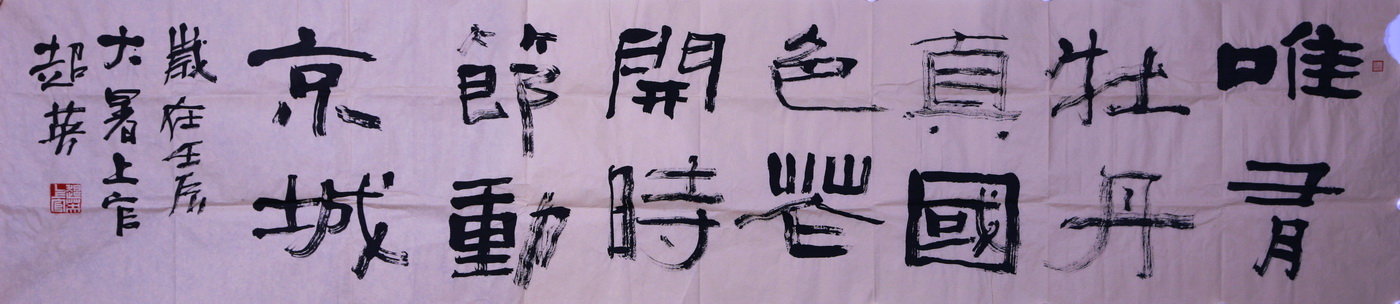 唯有
牡丹
真國
色花
開時
節動
京城
歲在壬辰
大暑上官
超英